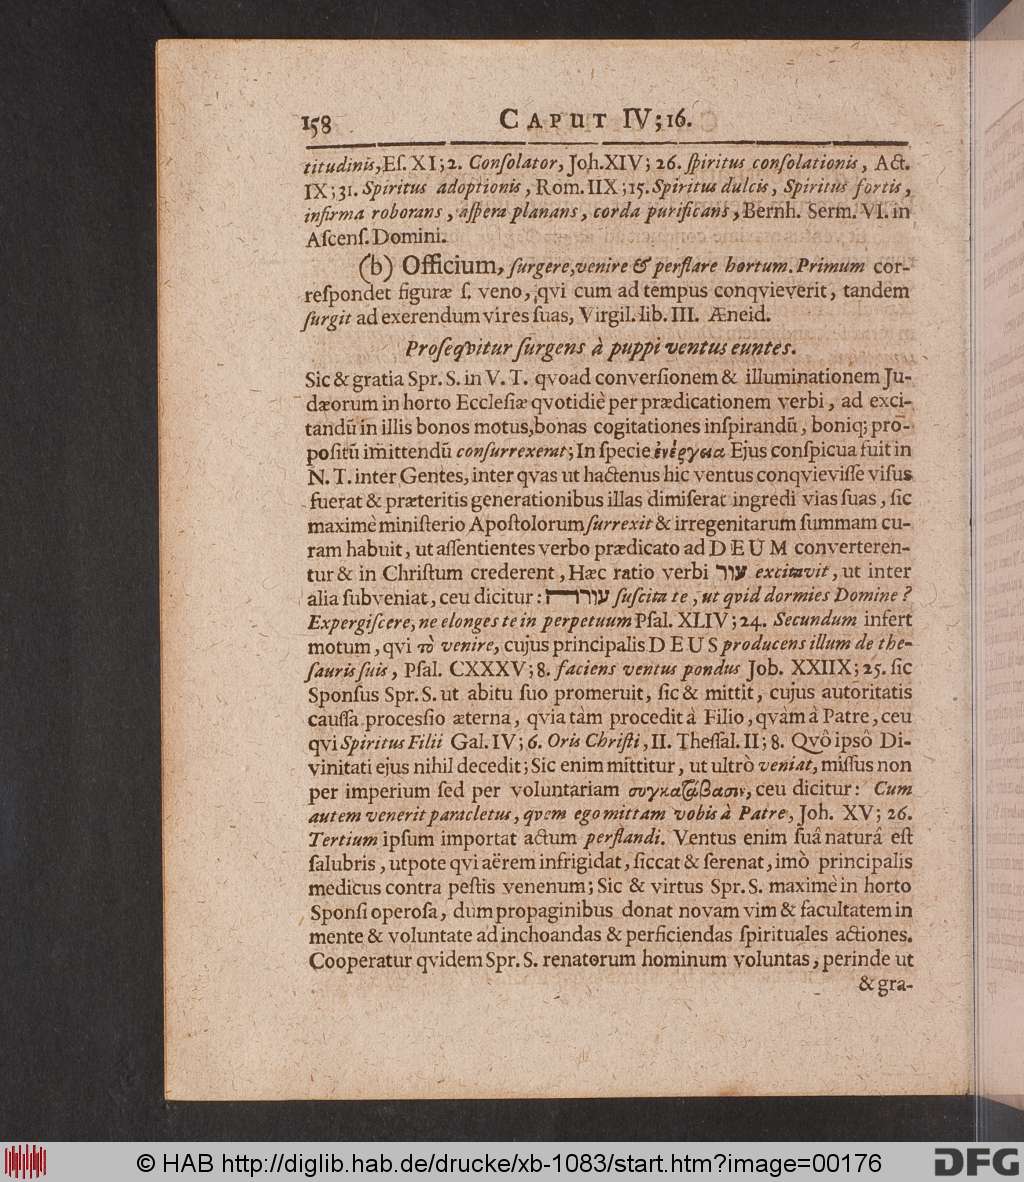 158 CAPUT IV; 16.
titudinis, Eſ. XI; 2. Conſolator, Joh. XIV; 26. ſpiritus conſolationis, Act.
IX; 31. Spiritus adoptionis, Rom. IIX; 15. Spiritus dulcis, Spiritus fortis,
infirma roborans, aſpera planans, corda purificans, Bernh. Serm. VI. in
Aſcenſ. Domini.
(b) Officium, ſurgere, venire & perflare hortum. Primum cor-
reſpondet figuræ ſ. veno, qvi cum ad tempus conqvieverit, tandem
ſurgit ad exerendum vires ſuas, Virgil. lib. III. Æneid.
Proſeqvitur ſurgens à puppi ventus euntes.
Sic & gratia Spr. S. in V. T. qvoad converſionem & illuminationem Ju-
dæorum in horto Eccleſiæ qvotidiè per prædicationem verbi, ad exci-
tandũ in illis bonos motus, bonas cogitationes inſpirandũ, boniq; pro-
poſitũ im̃ittendũ conſurrexerat; In ſpecie ἐνέργεια Ejus conſpicua fuit in
N. T. inter Gentes, inter qvas ut hactenus hic ventus conqvieviſſe viſus
fuerat & præteritis generationibus illas dimiſerat ingredi vias ſuas, ſic
maximè miniſterio Apoſtolorum ſurrexit & irregenitarum ſummam cu-
ram habuit, ut aſſentientes verbo prædicato ad DEUM converteren-
tur & in Chriſtum crederent, Hæc ratio verbi עור excitavit, ut inter
alia ſubveniat, ceu dicitur: עורה ſuſcita te, ut qvid dormies Domine?
Expergiſcere, ne elonges te in perpetuum Pſal. XLIV; 24. Secundum infert
motum, qvi τὸ venire, cujus principalis DEUS producens illum de the-
ſauris ſuis, Pſal. CXXXV; 8. faciens ventus pondus Job. XXIIX; 25. ſic
Sponſus Spr. S. ut abitu ſuo promeruit, ſic & mittit, cujus autoritatis
cauſſa proceſſio æterna, qvia tàm procedit à Filio, qvàm à Patre, ceu
qvi Spiritus Filii Gal. IV; 6. Oris Chriſti, II. Theſſal. II; 8. Qvô ipsô Di-
vinitati ejus nihil decedit; Sic enim mittitur, ut ultrò veniat, miſſus non
per imperium ſed per voluntariam συγκατάβασιν, ceu dicitur: Cum
autem venerit paracletus, qvem ego mittam vobis à Patre, Joh. XV; 26.
Tertium ipſum importat actum perflandi. Ventus enim ſuâ naturâ eſt
ſalubris, utpote qvi aërem infrigidat, ſiccat & ſerenat, imò principalis
medicus contra peſtis venenum; Sic & virtus Spr. S. maximè in horto
Sponſi operoſa, dum propaginibus donat novam vim & facultatem in
mente & voluntate ad inchoandas & perficiendas ſpirituales actiones.
Cooperatur qvidem Spr. S. renatorum hominum voluntas, perinde ut
& gra-
© HAB http://diglib.hab.de/drucke/xb-1083/start.htm?image=00176
DFG